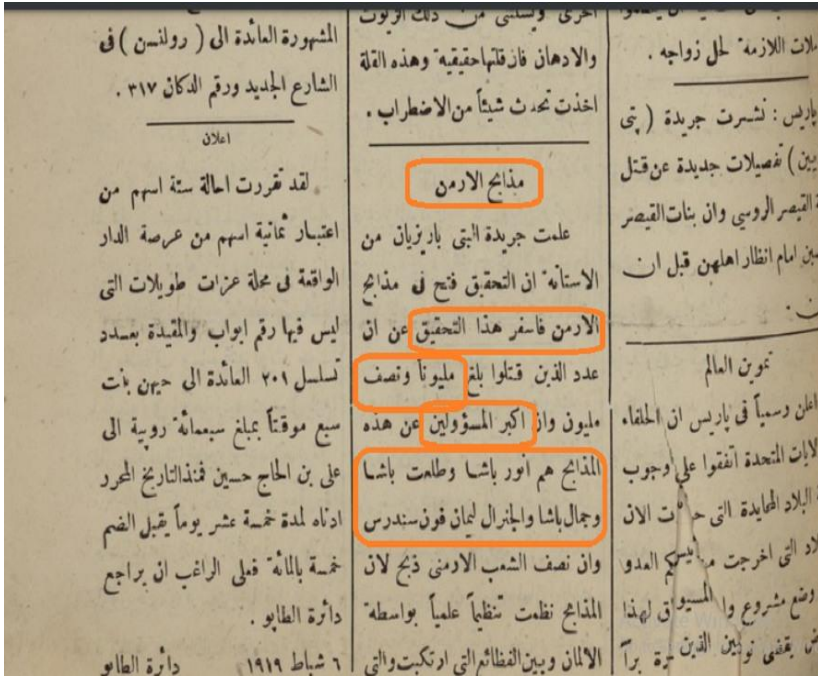 اللازمة لحل زواجه .
باريس : نشرت جريدة ( پتي
تفصيلات جديدة عن قتل
القيصر الروسي وان بنات القيصر
امام انظار اهلهن قبل ان
تموين العالم
اعلن رسمياً في باريس ان الحلفاء
المتحدة اتفقوا على وجوب
البلاد المحايدة التي الان
التي اخرجت العدو
وضع مشروع لهذا
اخرى ويستثنى من ذلك الزيوت
والادهان فان قلتها حقيقية وهذه القلة
اخذت تحدث شيئاً من الاضطراب .
مذابح الارمن
علمت جريدة البتي باريزيان من
الاستانة ان التحقيق فتح في مذابح
الارمن فاسفر هذا التحقيق عن ان
عدد الذين قتلوا بلغ مليوناً ونصف
مليون وان اكبر المسؤولين عن هذه
المذابح هم انور باشا وطلعت باشا
وجمال باشا والجنرال ليمان فون سندرس
وان نصف الشعب الارمني ذبح لان
المذابح نظمت تنظيماً علمياً بواسطة
الالمان وبين الفظائع التي ارتكبت والتي
المشهورة العائدة الى ( رولنسن ) في
الشارع الجديد ورقم الدكان ٣١٧ .
اعلان
لقد تقررت احالة ستة اسهم من
اعتبار ثمانية اسهم من عرصة الدار
الواقعة في محلة عزات طويلات التي
ليس فيها رقم ابواب والمقيدة بعدد
تسلسل ٢٠١ العائدة الى بنت
سبع موقتاً بمبلغ سبعمائة روبية الى
علي بن الحاج حسين فمنذ التاريخ المحرر
ادناه لمدة خمسة عشر يوماً يقبل الضم
خمسة بالمائة فعلى الراغب ان يراجع
دائرة الطابو .
٦ شباط ١٩١٩ دائرة الطابو